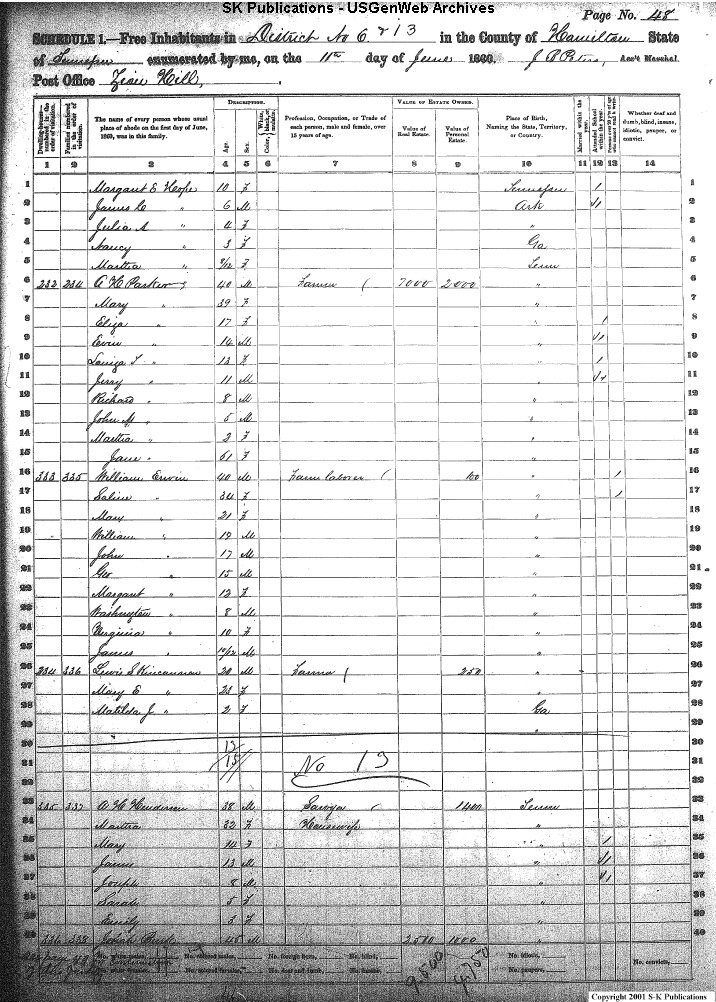 SK Publications - USGenWeb Archives
Page No. 48
SCHEDULE 1.—Free Inhabitants in District No 6 & 13 in the County of Hamilton State
of Tennessee enumerated by me, on the 11th day of June 1860. J P Peters, Ass't Marshal.
Post Office Zion Hill,
Dwelling-houses—numbered in the order of visitation.
Families numbered in the order of visitation.
The name of every person whose usual place of abode on the first day of June, 1860, was in this family.
DESCRIPTION.
Age.
Sex.
Color, White, black, or mulatto.
Profession, Occupation, or Trade of each person, male and female, over 15 years of age.
VALUE OF ESTATE OWNED.
Value of Real Estate.
Value of Personal Estate.
Place of Birth, Naming the State, Territory, or Country.
Married within the year.
Attended School within the year.
Whether deaf and dumb, blind, insane, idiotic, pauper, or convict.
1 2 3 4 5 6 7 8 9 10 11 12 13 14
1 Margaret E Hope 10 F Tennessee 1 1
2 James C " 6 M Ark 1 2
3 Julia A " 4 F " 3
4 Nancy " 3 F Ga 4
5 Martha " 9/12 F Tenn 5
6 232 234 A H Parker 40 M Farmer 7000 2000 " 6
7 Mary " 39 F " 7
8 Eliza " 17 F " 1 8
9 Ervin " 14 M " 1 9
10 Louiza T " 13 F " 1 10
11 Jerry " 11 M " 11
12 Richard " 8 M " 12
13 John M " 5 M " 13
14 Martha " 2 F " 14
15 Jane " 61 F " 15
16 333 335 William Ervin 40 M Farm laborer 100 " 1 16
17 " 34 F " 1 17
18 Mary " 21 F " 18
19 William " 19 M " 19
20 John " 17 M " 20
21 Geo " 15 M " 21
22 Margaret " 12 F " 22
23 Washington " 8 M " 23
24 Virginia " 10 F " 24
25 James " 10/12 M " 25
26 234 336 Lewis S Kincannon 20 M Farmer 250 " 26
27 Mary E " 23 F " 27
28 Matilda J " 2 F Ga 28
29 " 29
30 12 30
31 13 No 13 31
32 32
33 335 337 A H Henderson 38 M Sawyer 1400 Tenn 33
34 Martha 32 F Housewife " 34
35 Mary 14 F " 1 35
36 James 13 M " 1 36
37 Joseph 8 M " 1 37
38 Sarah 5 F
39 Emily 3 F
40 336 338 45 M 2500 1000 40
No. white males, No. colored males, No. foreign born, No. blind, No. idiotic, No. convicts,
No. white females, No. colored females, No. deaf and dumb, No. insane, No. paupers,
9,500 4,750
Copyright 2001 S-K Publications